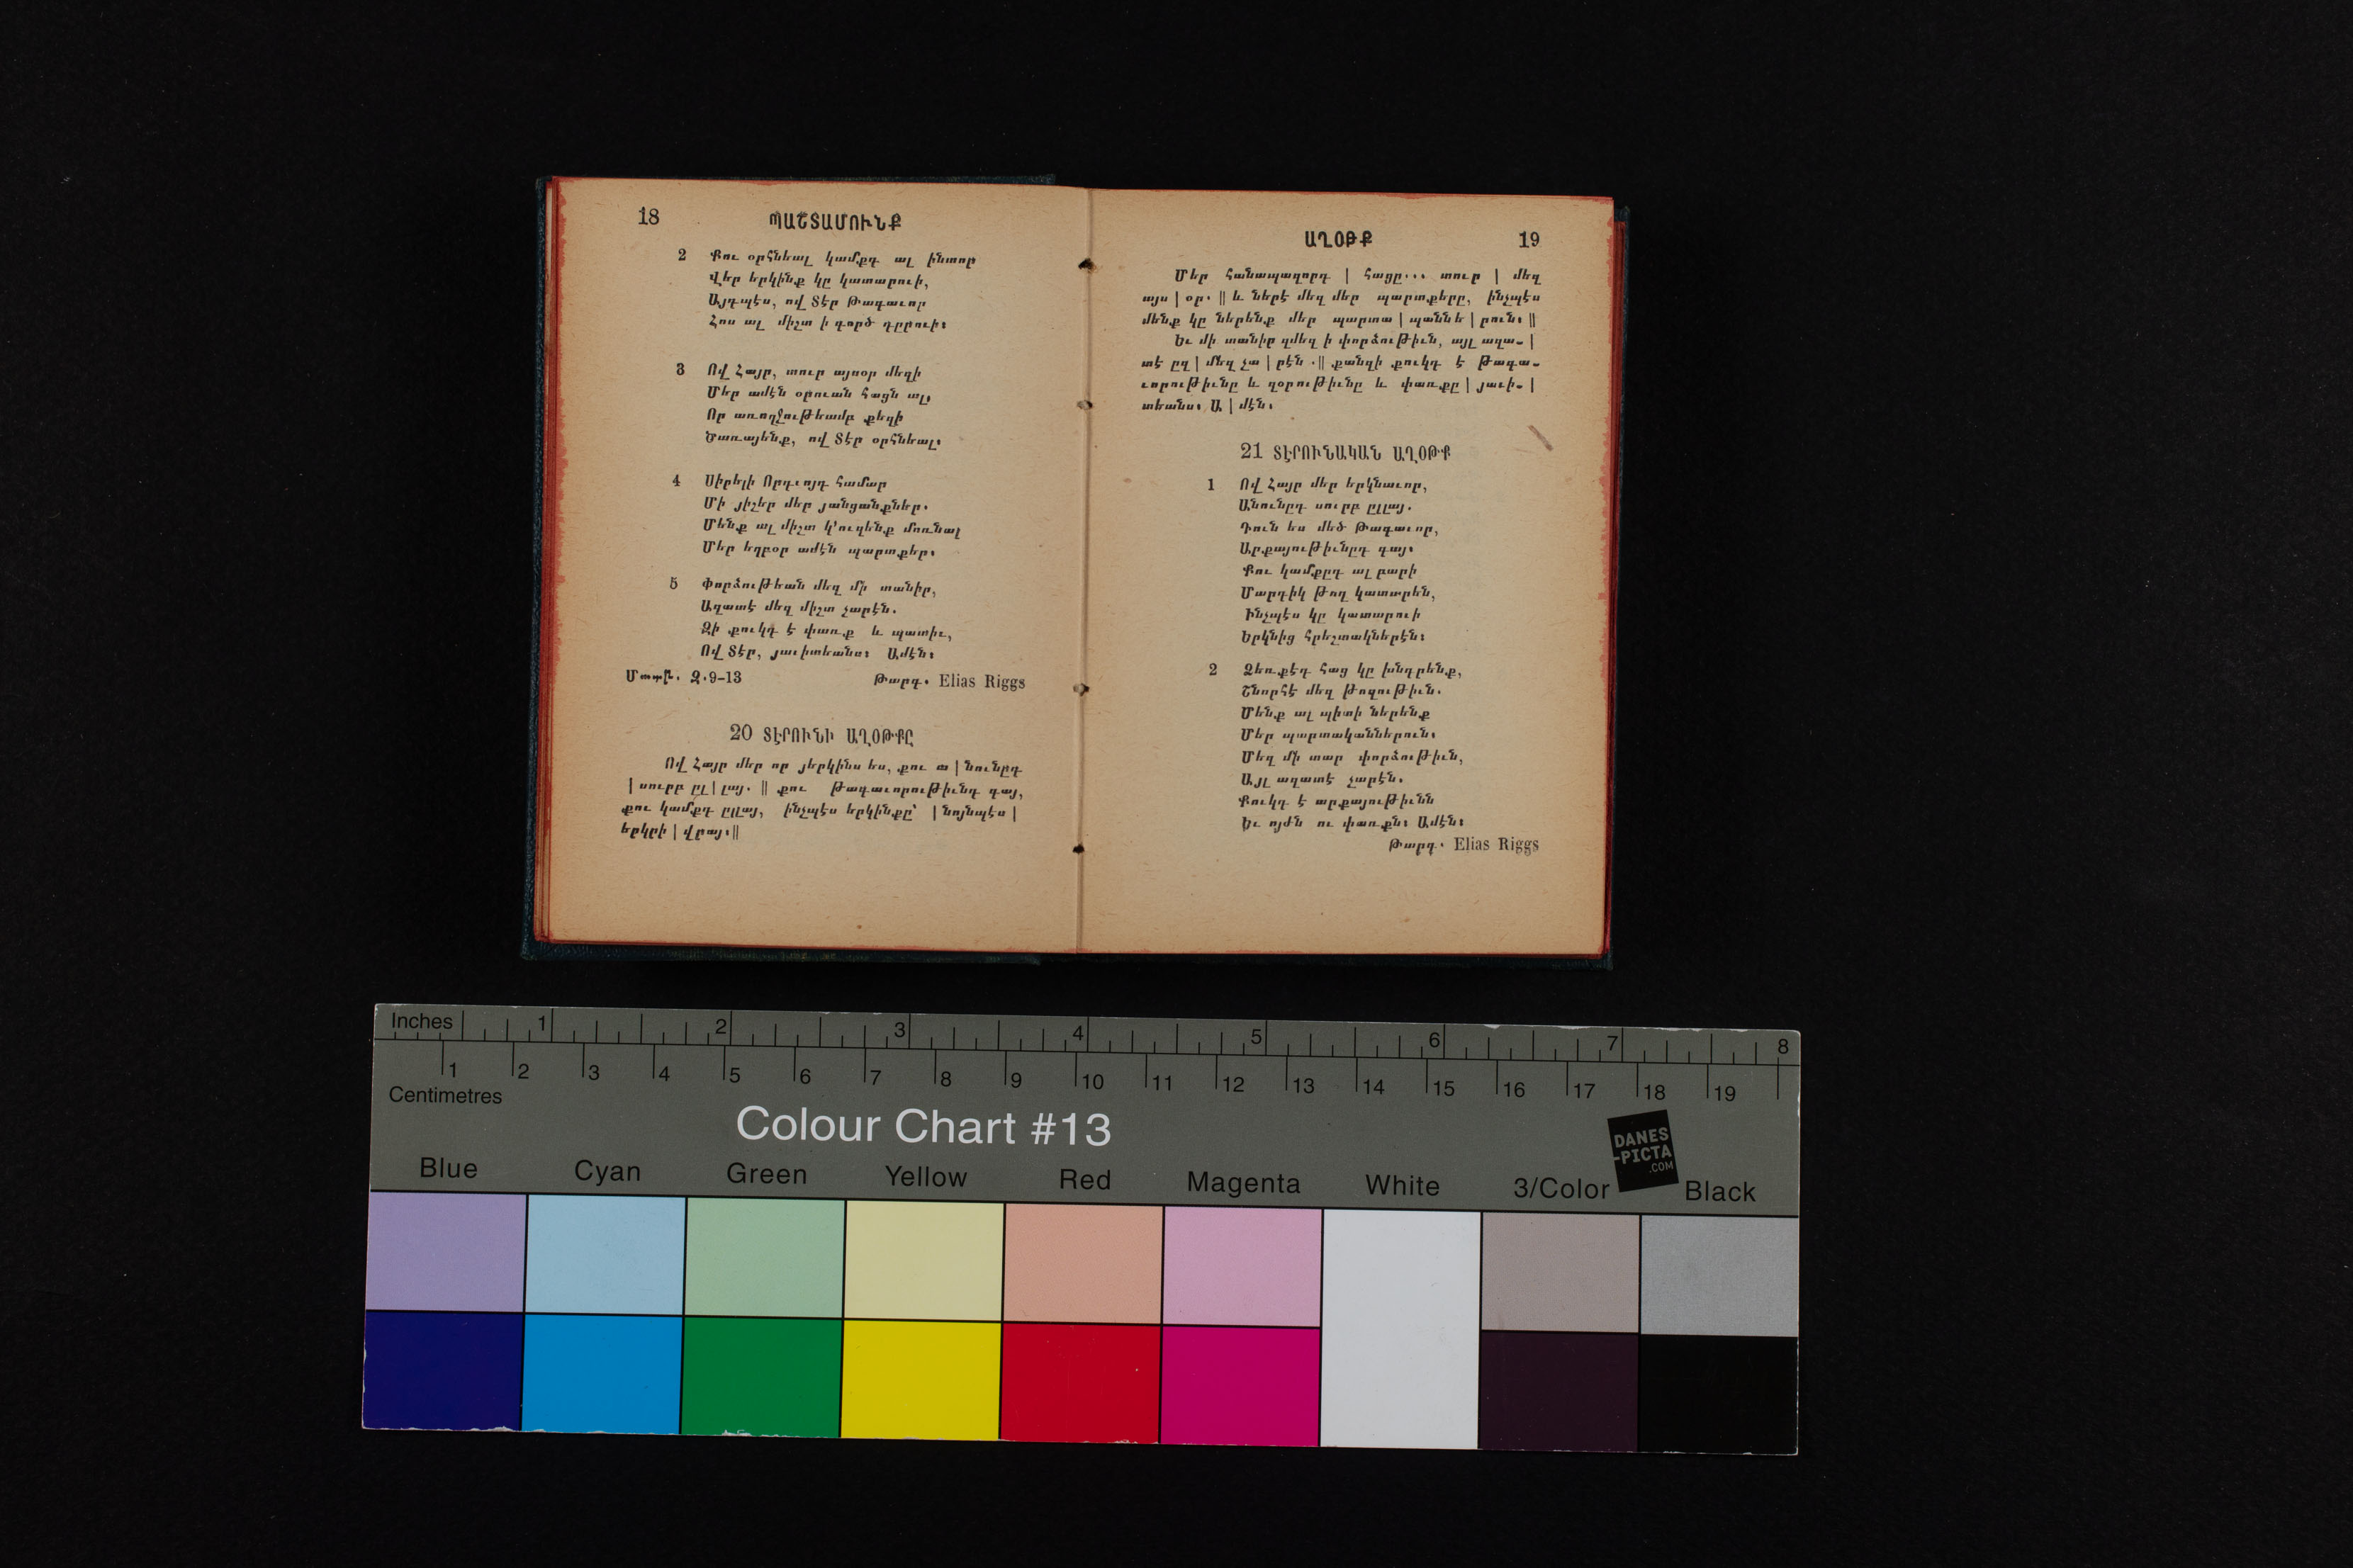 18 ՊԱՇՏԱՄՈՒՆՔ
2 Քու օրհնեալ կամքդ ալ ինտոր
Վեր երկինք կը կատարուի,
Այդպէս, ով Տէր Թագաւոր
Հոս ալ միշտ ի գործ դրրուի։
3 Ով Հայր, տուր այսօր մեզի
Մեր ամէն օրուան հացն ալ,
Որ առողջութեամբ քեզի
Ծառայենք, ով Տէր օրհնեալ։
4 Սիրելի Որդւոյդ համար
Մի յիշեր մեր յանցանքներ.
Մենք ալ միշտ կ՚ուզենք մոռնալ
Մեր եղբօր ամէն պարտքեր։
5 Փորձութեան մեզ մի տանիր,
Ազատէ մեզ միշտ չարէն.
Զի քուկդ է փառք և պատիւ,
Ով Տէր, յաւիտեանս։ Ամէն։
Մատթ. Զ.9-13 Թարգ. Elias Riggs
20 ՏԷՐՈՒՆԻ ԱՂՕԹՔԸ
Ով Հայր մեր որ յերկինս ես, քու ա | նունըդ
| սուրբ ըլ | լայ. || քու Թագաւորութիւնդ գայ,
քու կամքդ ըլլայ, ինչպէս երկինքը՝ | նոյնպէս |
երկրի | վրայ։||
ԱՂՕԹՔ 19
Մեր հանապազորդ | հացը... տուր | մեզ
այս | օր. || և ներէ մեզ մեր պարտքերը, ինչպէս
մենք կը ներենք մեր պարտա | պաննե | րուն։ ||
Եւ մի տանիր զմեզ ի փորձութիւն, այլ ազա- |
տէ ըզ | մեզ չա | րէն .|| քանզի քուկդ է Թագա-
ւորութիւնը և զօրութիւնը և փառքը | յաւի- |
տեանս։ Ա | մէն։
21 ՏԷՐՈՒՆԱԿԱՆ ԱՂՕԹՔ
1 Ով Հայր մեր երկնաւոր,
Անունըդ սուրբ ըլլայ.
Դուն ես մեծ Թագաւոր,
Արքայութիւնըդ գայ։
Քու կամքըդ ալ բարի
Մարդիկ թող կատարեն,
Ինչպէս կը կատարուի
Երկնից հրեշտակներէն։
2 Ձեռքէդ հաց կը խնդրենք,
Շնորհէ մեզ թողութիւն.
Մենք ալ պիտի ներենք
Մեր պարտականներուն։
Մեզ մի տար փորձութիւն,
Այլ ազատէ չարէն.
Քուկդ է արքայութիւնն
Եւ ոյժն ու փառքն։ Ամէն։
Թարգ. Elias Riggs
Inches 1 2 3 4 5 6 7 8
1 2 3 4 5 6 7 8 9 10 11 12 13 14 15 16 17 18 19
Centimetres
Colour Chart #13
DANES
-PICTA
.COM
Blue Cyan Green Yellow Red Magenta White 3/Color Black